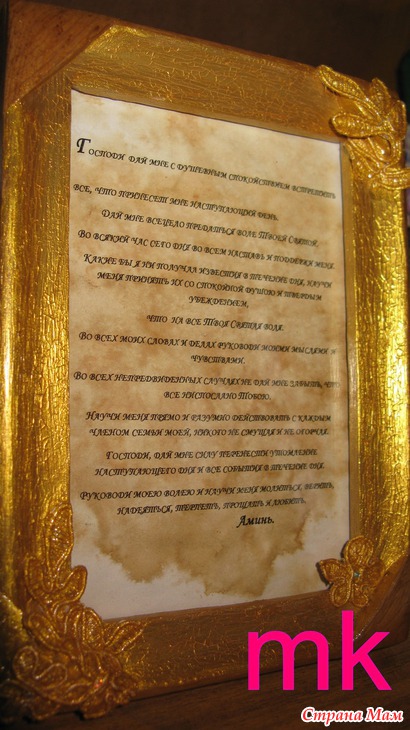 Господи дай мне с душевным спокойствием встретить
все, что принесет мне наступающий день.
Дай мне всецело предаться воле Твоей Святой,
Во всякий час сего дня во всем наставь и поддержи меня.
Какие бы я ни получала известия в течение дня, научи
меня принять их со спокойной душою и твердым
убеждением,
что на все Твоя Святая воля.
Во всех моих словах и делах руководи моими мыслями и
чувствами.
Во всех непредвиденных случаях не дай мне забыть, что
все ниспослано Тобою.
Научи меня прямо и разумно действовать с каждым
членом семьи моей, никого не смущая и не огорчая.
Господи, дай мне силу перенести утомление
наступающего дня и все события в течение дня.
Руководи моею волею и научи меня молиться, верить,
надеяться, терпеть, прощать и любить.
Аминь.
mk
Страна Мам